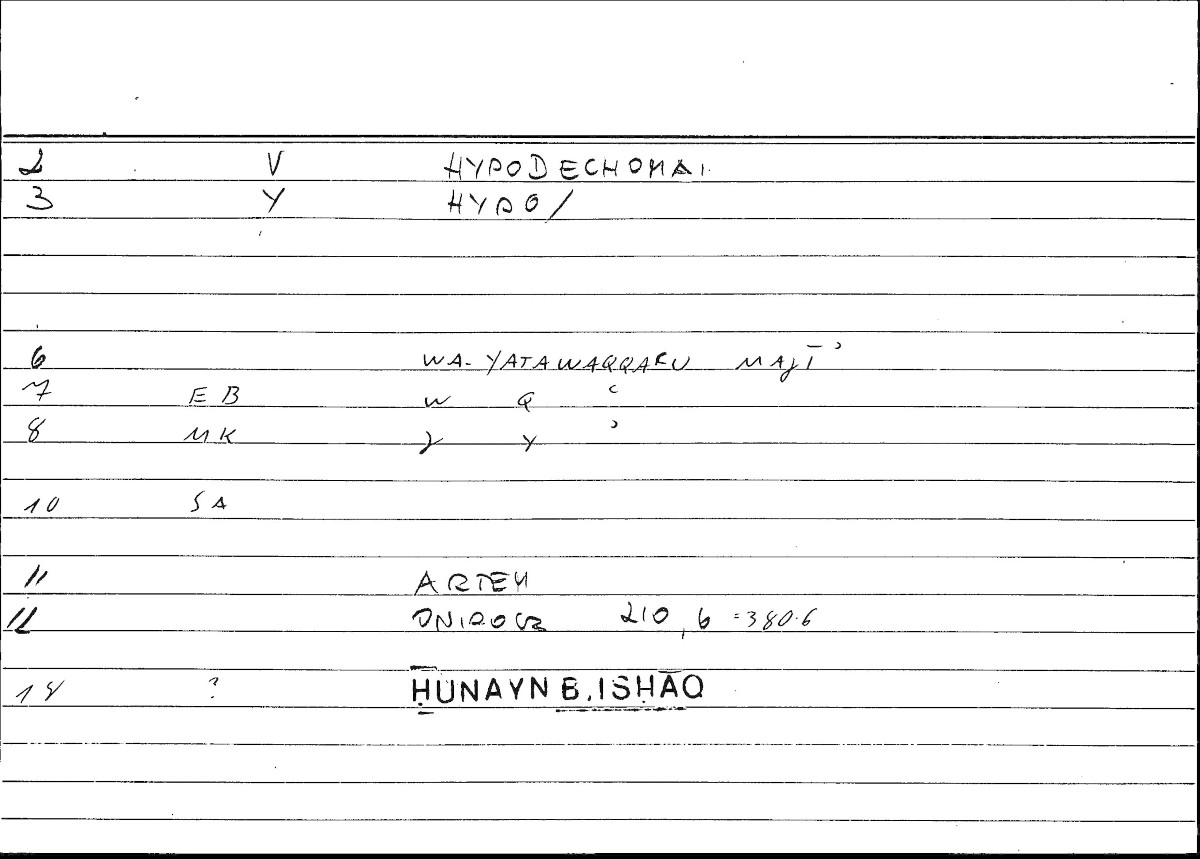 2 V HYPODECHOMAI
3 Y HYPO/
6 WA-YATAWAQQAʿU MAJĪʾ
7 EB W Q ʿ
8 MK J Y ʾ
10 SA
11 ARTEM
12 ONIROCR 210,6 =380.6
18 ? ḤUNAYN B.ISḤĀQ